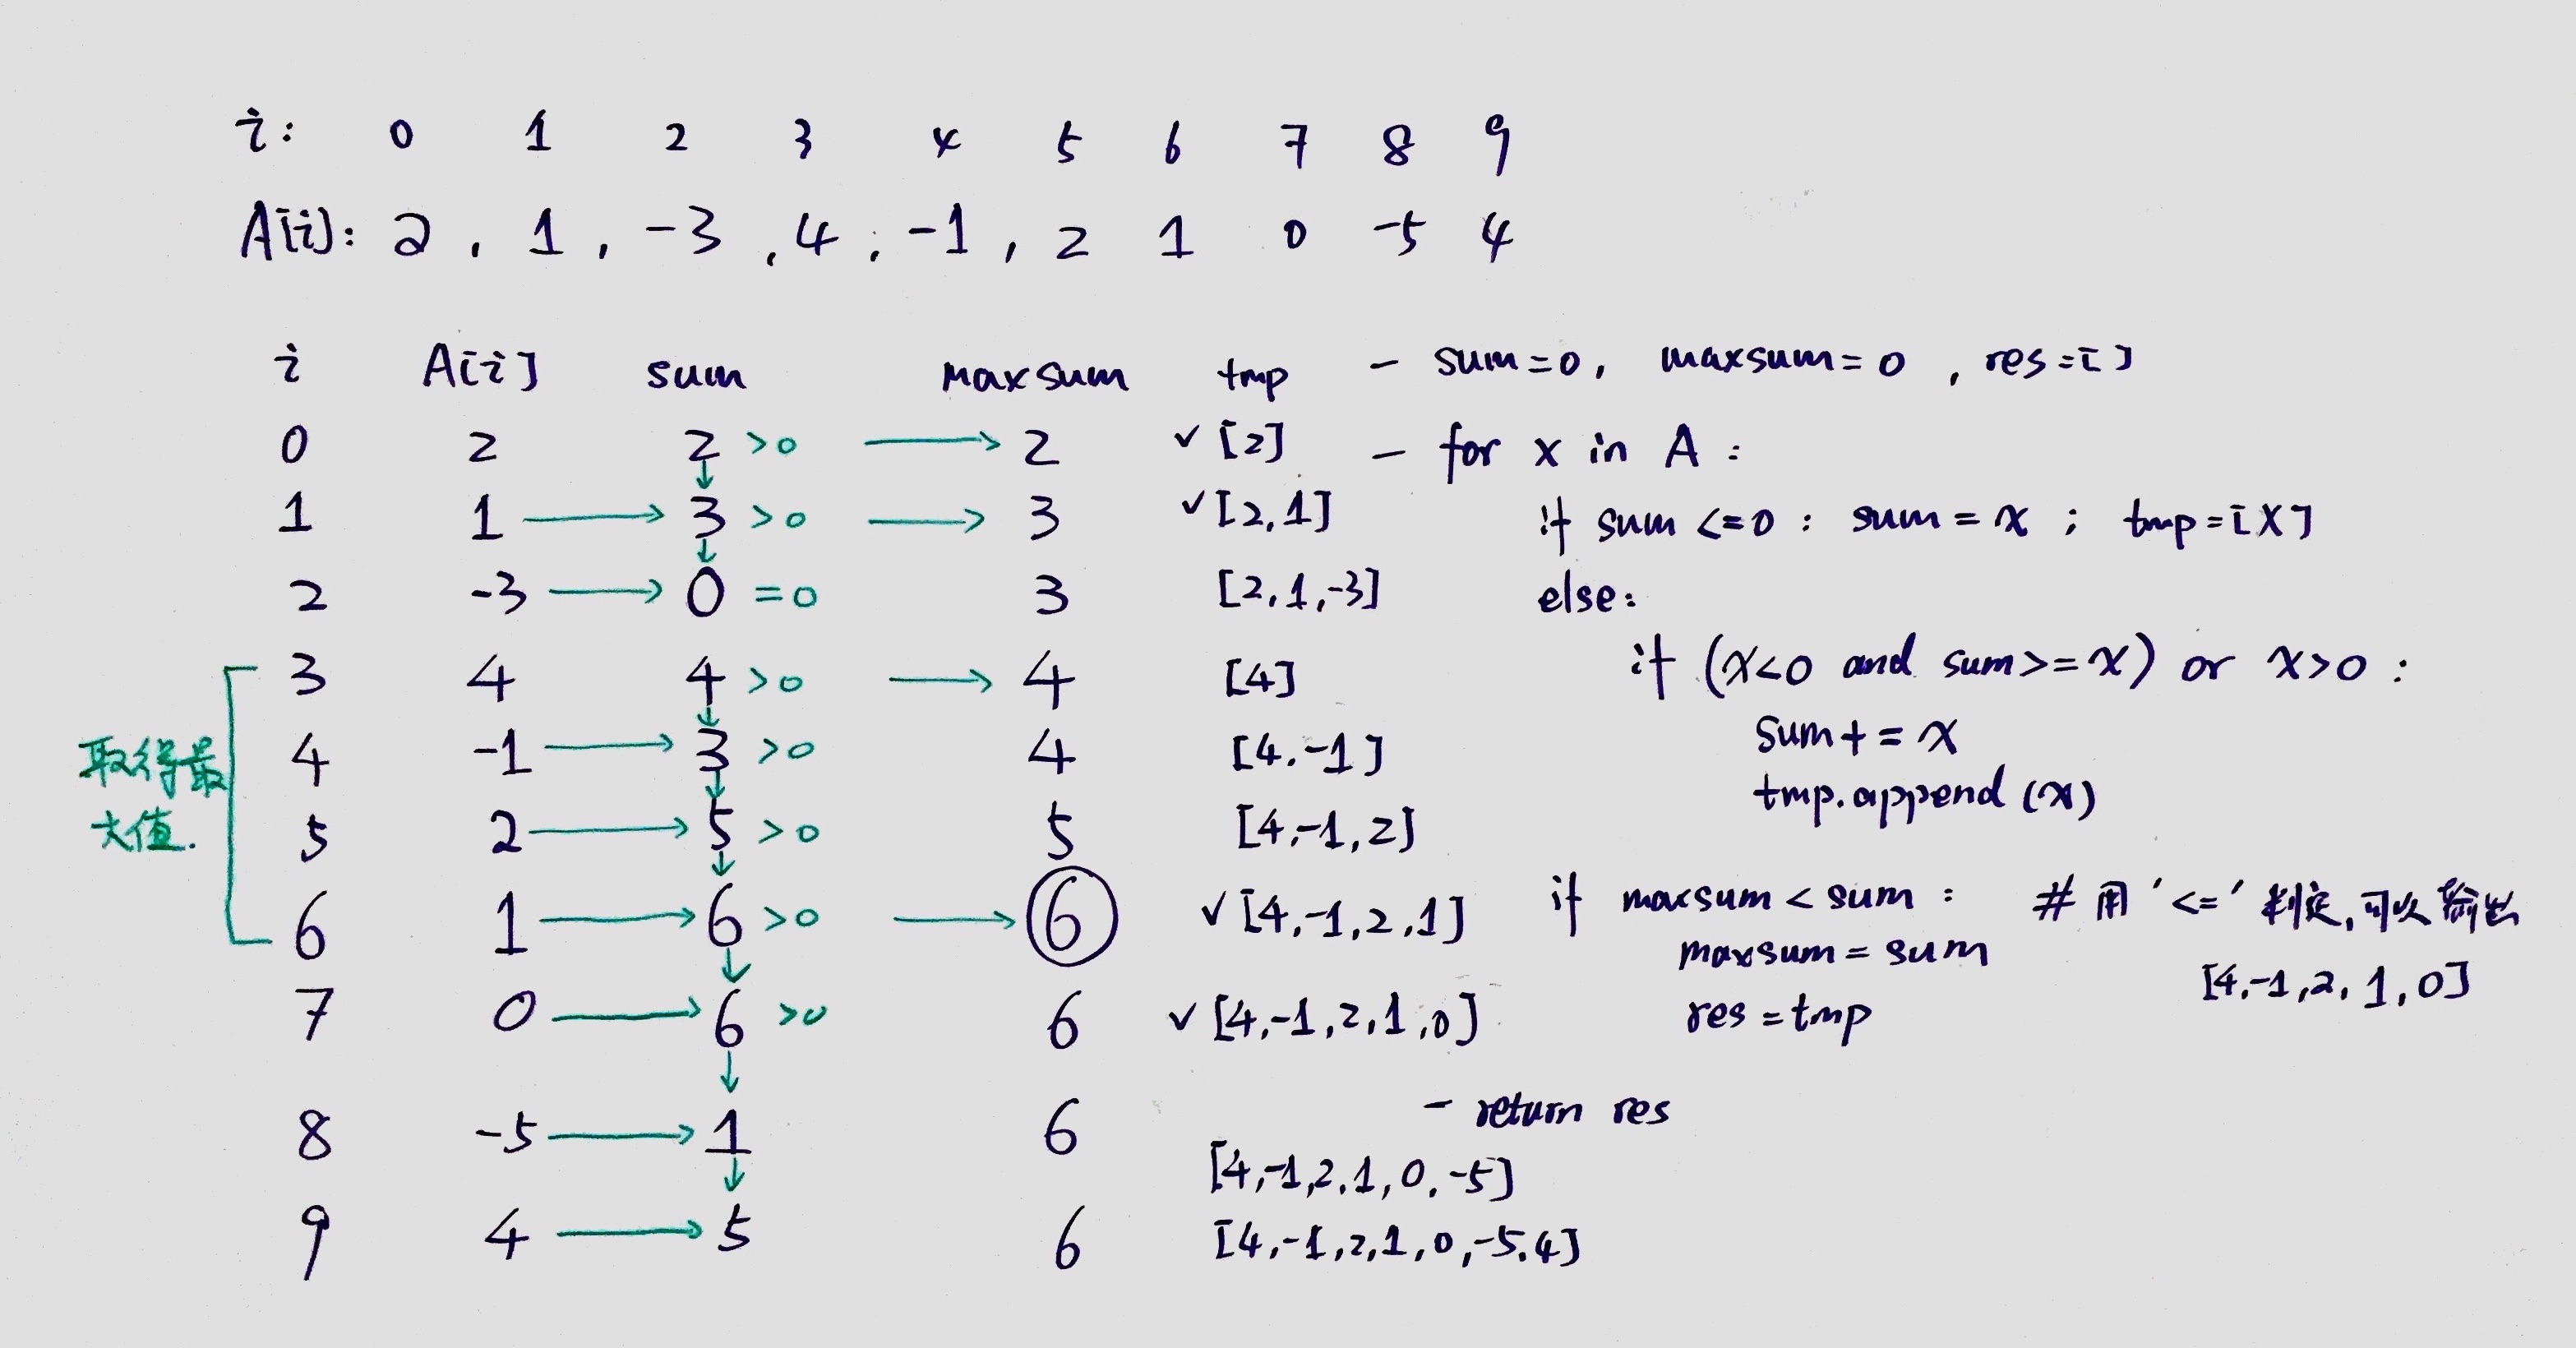 i: 0 1 2 3 4 5 6 7 8 9
A[i]: 2 , 1 , -3 , 4 , -1 , 2 1 0 -5 4
i A[i] sum maxsum tmp
0 2 2 >0 → 2 ✓ [2]
1 1 → 3 >0 → 3 ✓ [2,1]
2 -3 → 0 =0 3 [2,1,-3]
3 4 4 >0 → 4 [4]
4 -1 → 3 >0 4 [4,-1]
5 2 → 5 >0 5 [4,-1,2]
6 1 → 6 >0 → 6 ✓ [4,-1,2,1]
7 0 → 6 >0 6 ✓ [4,-1,2,1,0]
8 -5 → 1 6 [4,-1,2,1,0,-5]
9 4 → 5 6 [4,-1,2,1,0,-5,4]
取得最
大值.
- sum=0, maxsum=0 , res=[]
- for x in A :
if sum <=0 : sum = x ; tmp=[x]
else:
if (x<0 and sum>=x) or x>0 :
sum+=x
tmp.append(x)
if maxsum < sum : # 用'<='判定,可以输出
maxsum = sum [4,-1,2,1,0]
res = tmp
- return res